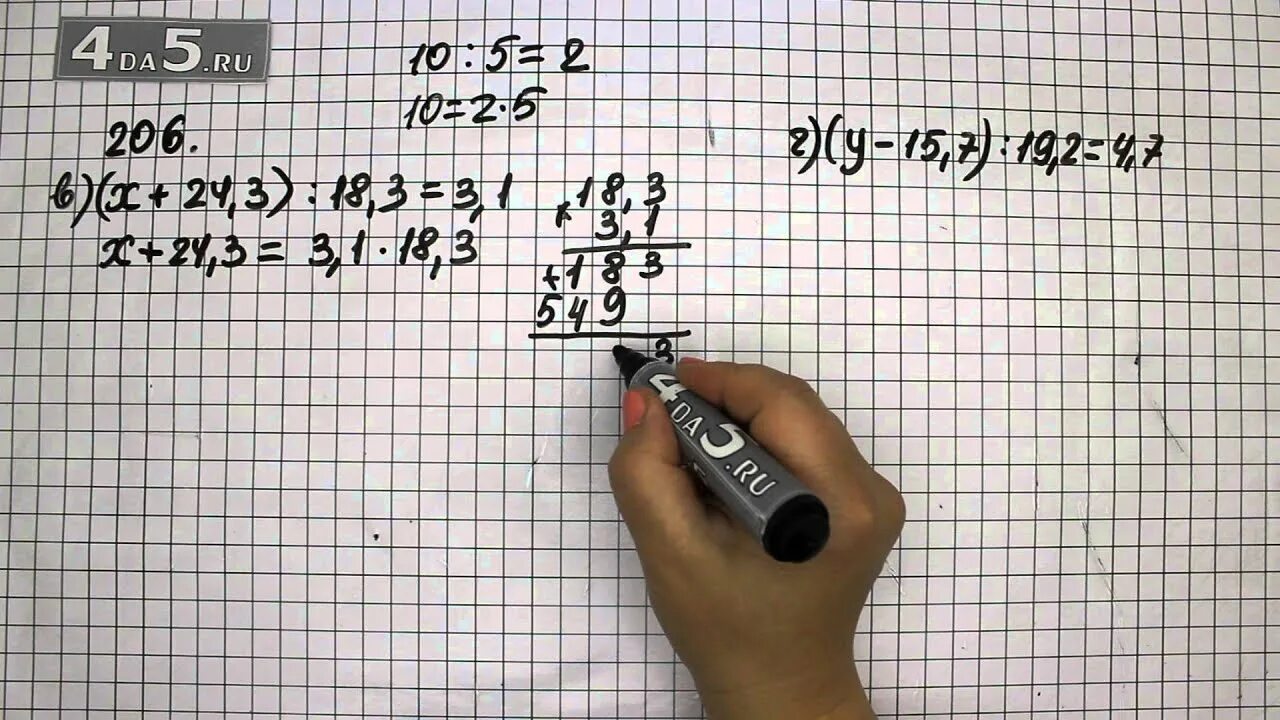 4DA5.RU
10 : 5 = 2
10 = 2 · 5
206.
в) (x + 24,3) : 18,3 = 3,1
x + 24,3 = 3,1 · 18,3
× 18,3
3,1
+ 183
549
3
г) (y - 15,7) : 19,2 = 4,7
4DA5.RU